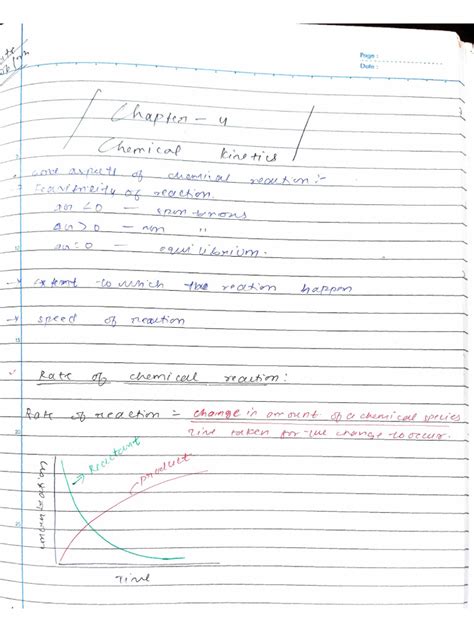 Page :
Date :
Chapter - 4
Chemical kinetics
aspects of chemical reaction :-
Feasibility of reaction.
<0 — spontnous
>0 — non "
=0 — equilibrium.
→ extent to which the reation happen
→ speed of reaction
Rate of chemical reaction:
Rate of reaction = change in amount of a chemical species
Time taken for the change to occur.
Reactant
product
Time